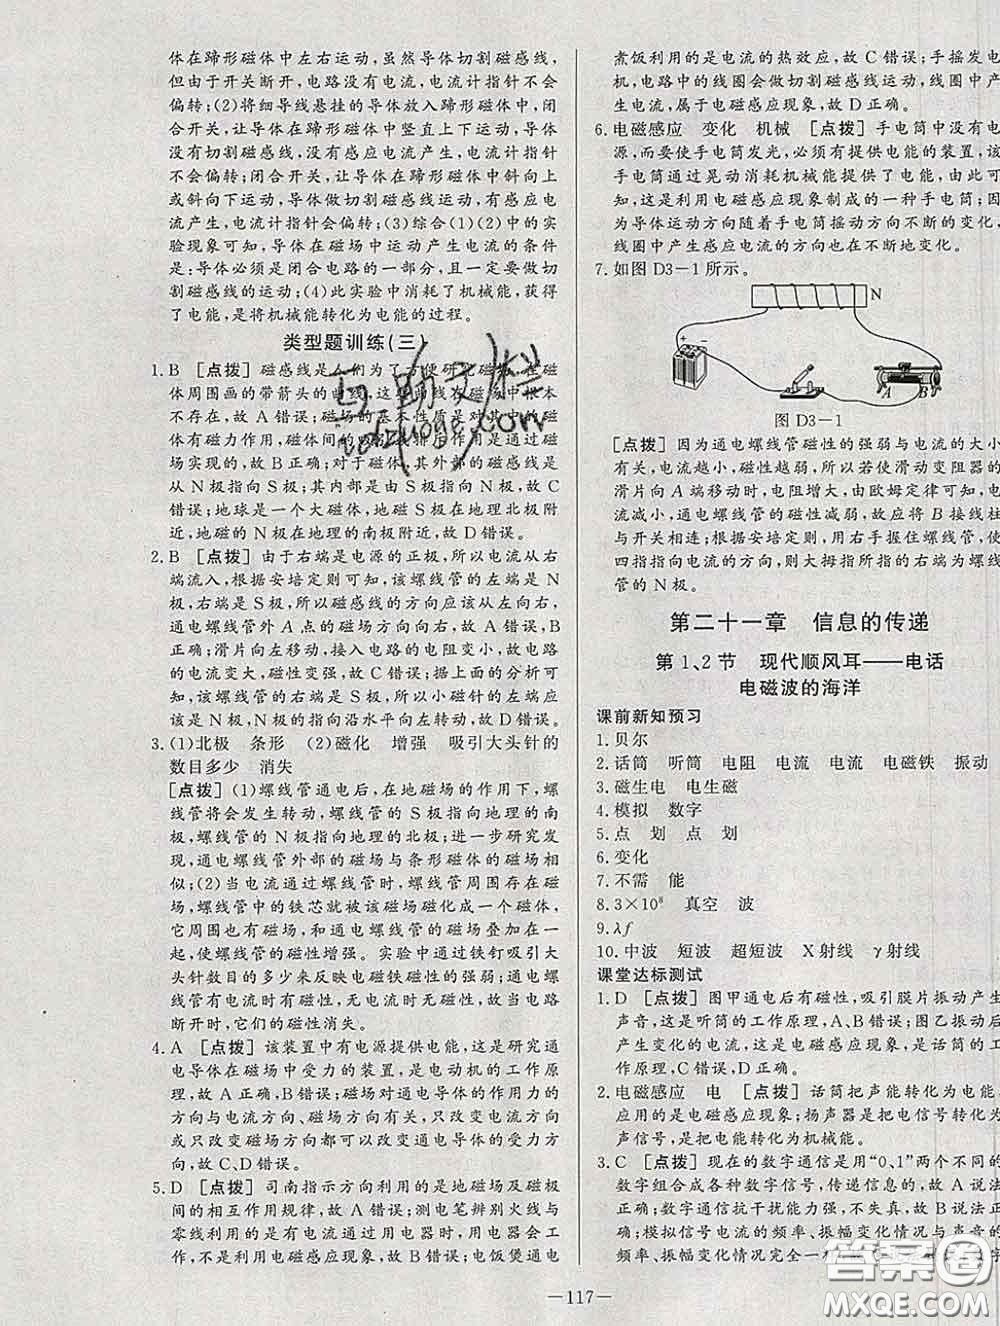 体在蹄形磁体中左右运动,虽然导体切割磁感线,
但由于开关断开,电路没有电流,电流计指针不会
偏转;(2)将细导线悬挂的导体放入蹄形磁体中,闭
合开关,让导体在蹄形磁体中竖直上下运动,导体
没有切割磁感线,没有感应电流产生,电流计指针
不会偏转;闭合开关,让导体在蹄形磁体中斜向上
或斜向下运动,导体做切割磁感线,有感应电
流产生,电流计指针会偏转;(3)综合(1)(2)中的实
验现象可知,导体在磁场中运动产生电流的条件
是:导体必须是闭合电路的一部分,且一定要做切
割磁感线的运动;(4)此实验中消耗了机械能,获得
了电能,是将机械能转化为电能的过程。
类型题训练(三)
1.B [点拨] 磁感线是人们为了方便研究磁场,在磁
体周围画的带箭头的曲线,这些线在磁场中根本
不存在,故A错误;磁场的基本性质是对其中的磁
体有磁力作用,磁体间的吸引和排斥作用是通过磁
场实现的,故B正确;对于磁体,其外部的磁感线是
从N极指向S极;其内部是由S极指向N极,故C
错误;地球是一个大磁体,地磁S极在地理北极附
近,地磁的N极在地理的南极附近,故D错误。
2.B [点拨] 由于右端是电源的正极,所以电流从右
端流入,根据安培定则可知,该螺线管的左端是N
极,右端是S极,所以磁感线的方向应该从左向右,
通电螺线管外A点的磁场方向向右,故A错误,B
正确;滑片向左移动,接入电路的电阻变小,电路中
的电流变大,磁性变强,故C错误;据安培定则可
知,该螺线管的右端是S极,所以小磁针的左端应
该是N极,N极的指向沿水平向左转动,故D错误。
3.(1)北极 条形 (2)磁化 增强 吸引大头针的
数目多少 消失
[点拨] (1)螺线管通电后,在地磁场的作用下,螺
线管将会发生转动,螺线管的S极指向地理的南
极,螺线管的N极指向地理的北极;进一步研究发
现,通电螺线管外部的磁场与条形磁体的磁场相
似;(2)当电流通过螺线管时,螺线管周围存在磁
场,螺线管中的铁芯就被该磁场磁化成一个磁体,
它周围也有磁场,和通电螺线管的磁场叠加在一
起,使螺线管的磁性增强。实验中通过铁钉吸引大
头针数目的多少来反映电磁铁磁性的强弱;通电螺
线管有电流时有磁性,无电流时无磁性,故当电路
断开时,它们的磁性消失。
4.A [点拨] 该装置中有电源提供电能,这是研究通
电导体在磁场中受力的装置,是电动机的工作原
理,故A正确,B错误;磁场对通电导体的作用力的
方向与电流方向、磁场方向有关,只改变电流方向
或只改变磁场方向都可以改变通电导体的受力方
向,故C、D错误。
5.D [点拨] 司南指示方向利用的是地磁场及磁极
间的相互作用规律,故A错误;测电笔辨别火线与
零线利用的是有电流通过用电器时,用电器会工
作,不是利用电磁感应现象,故B错误;电饭煲通电
煮饭利用的是电流的热效应,故C错误;手摇发电
机,电路中的线圈会做切割磁感线,线圈中产
生电流,属于电磁感应现象,故D正确。
6.电磁感应 变化 机械 [点拨] 手电筒中没有电
源,而要使手电筒发光,必须有提供电能的装置,该
手电筒通过晃动消耗机械能,产生了电能,由此可
知,这是利用电磁感应现象制成的一种手电筒;因
为导体运动方向随着手电筒摇动方向不断的变化,
线圈中产生感应电流的方向也在不断地变化。
7.如图D3-1所示。
N
+
-
A
B
图D3-1
[点拨] 因为通电螺线管磁性的强弱与电流的大小
有关,电流越小,磁性越弱,所以若使滑动变阻器的
滑片向A端移动时,电阻增大,由欧姆定律可知,电
流减小,通电螺线管的磁性减弱,故应将B接线柱
与开关相连;根据安培定则,用右手握住螺线管,使
四指指向电流的方向,则大拇指所指的右端为螺线
管的N极。
第二十一章 信息的传递
第1、2节 现代顺风耳——电话
电磁波的海洋
课前新知预习
1.贝尔
2.话筒 听筒 电阻 电流 电流 电磁铁 振动
3.磁生电 电生磁
4.模拟 数字
5.点 划 点 划
6.变化
7.不需 能
8.3×10⁸ 真空 波
9.λf
10.中波 短波 超短波 X射线 γ射线
课堂达标测试
1.D [点拨] 图甲通电后有磁性,吸引膜片振动产生
声音,这是听筒的工作原理,A、B错误;图乙振动后
产生变化的电流,这是电磁感应现象,是话筒的工作
原理,C错误,D正确。
2.电磁感应 电 [点拨] 话筒把声能转化为电能,
应用的是电磁感应现象;扬声器是把电信号转化为
声信号,是把电能转化为机械能。
3.C [点拨] 现在的数字通信是用“0、1”两个不同的
数字组合成各种数字信号,传递信息的,故A说法
正确;数字通信抗干扰能力强,不失真,故B说法正
确;模拟信号电流的频率、振幅变化情况与声音的
频率、振幅变化情况完全一样
—117—
答案圈
MXQE.COM